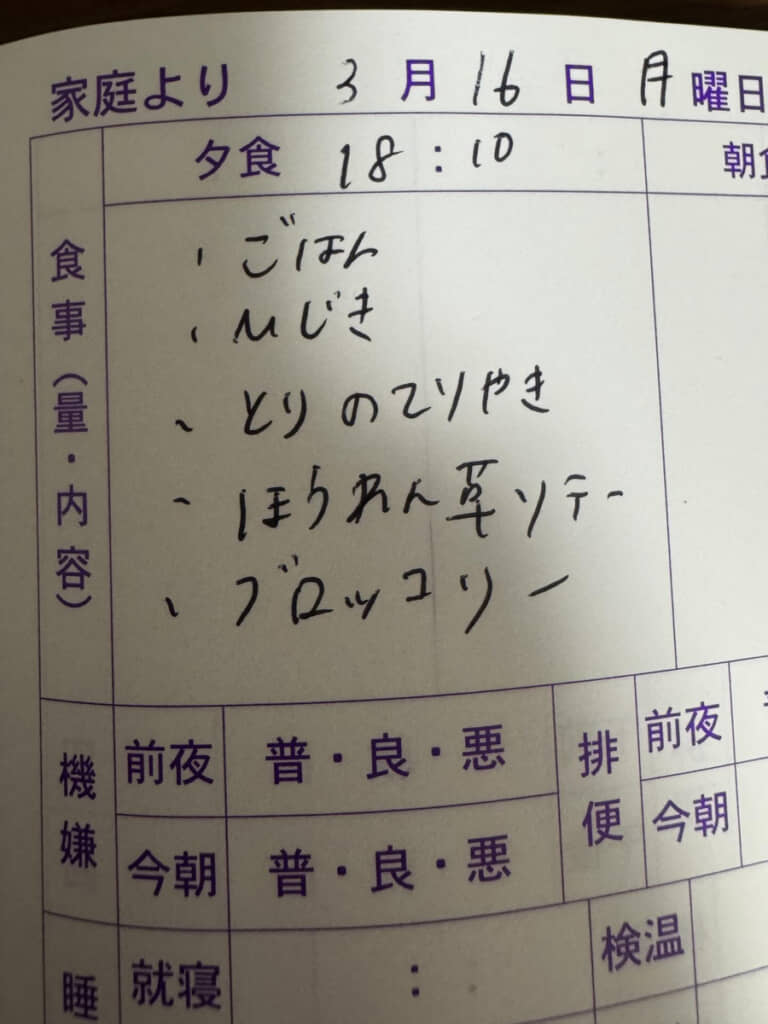 家庭より 3月16日 月曜日
夕食 18:10
朝食
食事(量・内容)
・ごはん
・ひじき
・とりのてりやき
・ほうれん草ソテー
・ブロッコリー
機嫌
前夜 普・良・悪
今朝 普・良・悪
排便
前夜
今朝
睡
就寝 :
検温